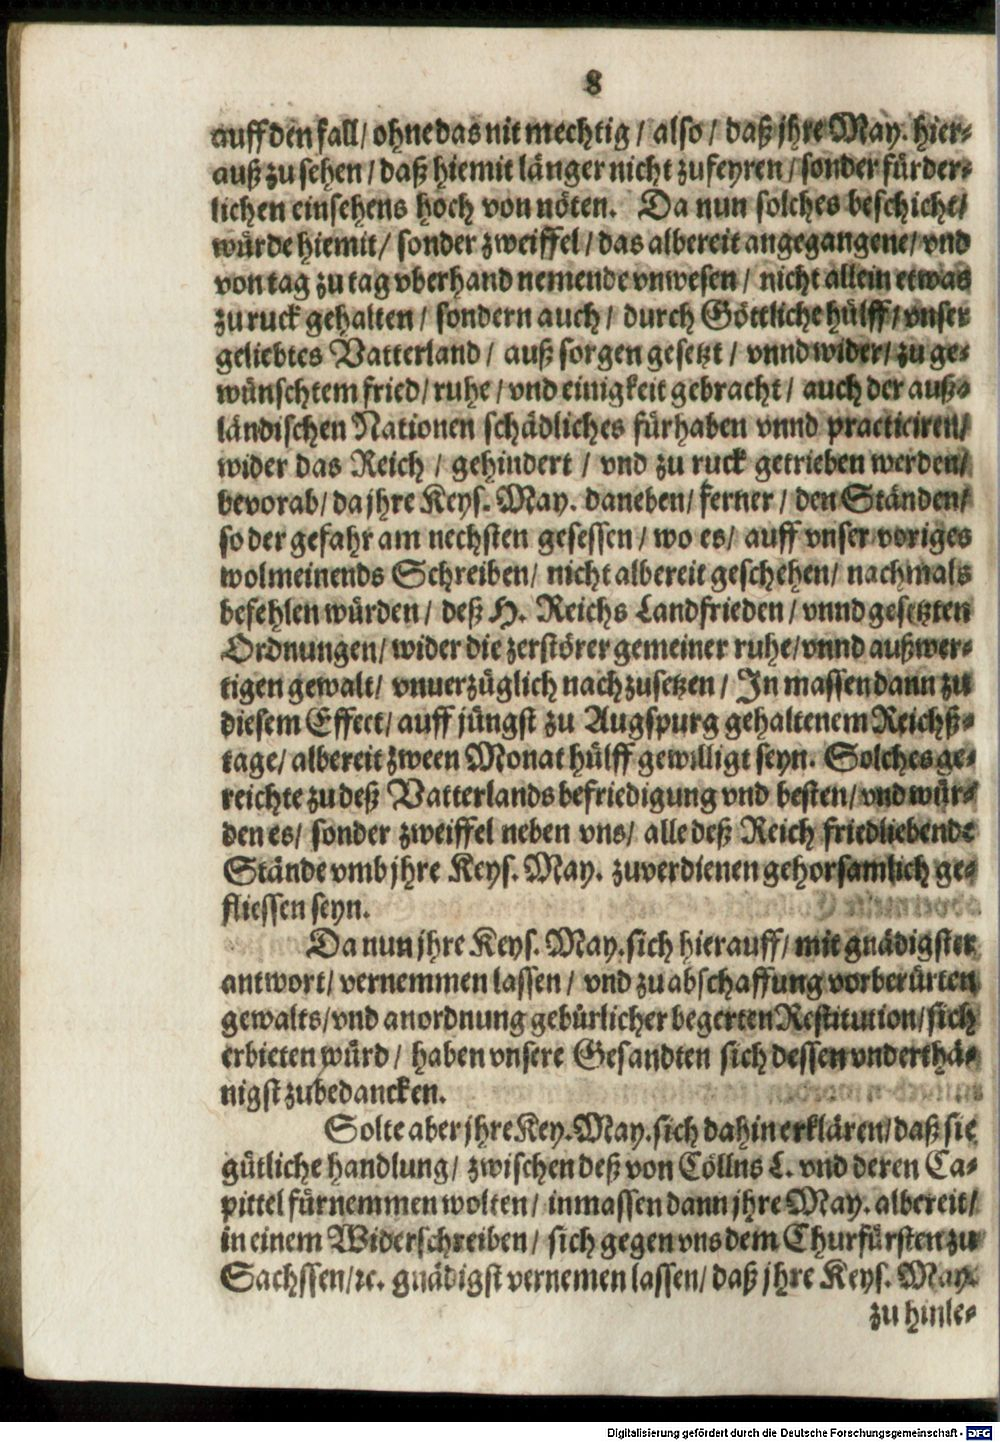 8
auff den fall / ohne das nit mechtig / also / daß jhre May. hier-
auß zu sehen / daß hiemit länger nicht zufeyren / sonder fürder-
lichen einsehens hoch von nöten. Da nun solches beschicht /
würde hiemit / sonder zweiffel / das albereit angegangene / vnd
von tag zu tag vberhand nemende vnwesen / nicht allein etwas
zu ruck gehalten / sondern auch / durch Göttliche hülff / vnser
geliebtes Vatterland / auß sorgen gesetzt / vnnd wider / zu ge-
wünschtem fried / ruhe / vnd einigkeit gebracht / auch der auß-
ländischen Nationen schädliches fürhaben vnnd practiciren /
wider das Reich / gehindert / vnd zu ruck getrieben werden /
bevorab / da jhre Keys. May. daneben / ferner / den Ständen /
so der gefahr am nechsten gesessen / wo es / auff vnser voriges
wolmeinends Schreiben / nicht albereit geschehen / nachmals
befehlen würden / deß H. Reichs Landfrieden / vnnd gesetzten
Ordnungen / wider die zerstörer gemeiner ruhe / vnnd außwer-
tigen gewalt / vnuerzüglich nachzusetzen / In massen dann zu
diesem Effect / auff jüngst zu Augspurg gehaltenem Reichß-
tage / albereit zween Monat hülff gewilligt seyn. Solches ge-
reichte zu deß Vatterlands befriedigung vnd besten / vnd wür-
den es / sonder zweiffel neben vns / alle deß Reich friedliebende
Stände vmb jhre Keys. May. zuverdienen gehorsamlich ge-
fliessen seyn.
Da nun jhre Keys. May. sich hierauff / mit gnädigster
antwort / vernemmen lassen / vnd zu abschaffung vorberürten
gewalts / vnd anordnung gebürlicher begerten Restitution / sich
erbieten würd / haben vnsere Gesandten sich dessen vnderthä-
nigst zubedancken.
Solte aber jhre Key. May. sich dahin erklären / daß sie
gütliche handlung / zwischen deß von Cöllns L. vnd deren Ca-
pittel fürnemmen wolten / inmassen dann jhre May. albereit /
in einem Widerschreiben / sich gegen vns dem Churfürsten zu
Sachssen / ꝛc. gnädigst vernemen lassen / daß jhre Keys. May.
zu hinle-
Digitalisierung gefördert durch die Deutsche Forschungsgemeinschaft - DFG